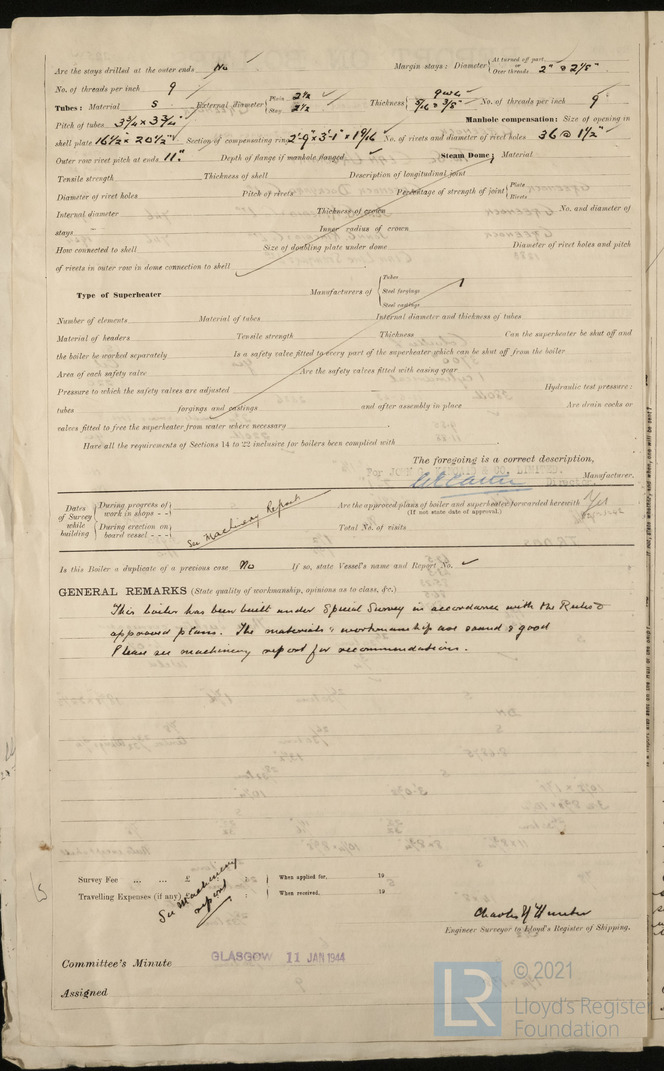 Are the stays drilled at the outer ends No Margin stays: Diameter { At turned off part, or Over threads 2" @ 2⅛"
No. of threads per inch 9
Tubes: Material S External diameter { Plain 2½ Stay 2½ Thickness { 9 WG 5/16 @ 3/8" No. of threads per inch 9
Pitch of tubes 3¾ x 3¾" Manhole compensation: Size of opening in
shell plate 16½" x 20½" Section of compensating ring 2'-9" x 3'-1" x 19/16 No. of rivets and diameter of rivet holes 36 @ 1½"
Outer row rivet pitch at ends 11" Depth of flange if manhole flanged Steam Dome: Material
Tensile strength Thickness of shell Description of longitudinal joint
Diameter of rivet holes Pitch of rivets Percentage of strength of joint { Plate Rivets
Internal diameter Thickness of crown No. and diameter of
stays Inner radius of crown
How connected to shell Size of doubling plate under dome Diameter of rivet holes and pitch
of rivets in outer row in dome connection to shell
Type of Superheater Manufacturers of { Tubes Steel forgings Steel castings
Number of elements Material of tubes Internal diameter and thickness of tubes
Material of headers Tensile strength Thickness Can the superheater be shut off and
the boiler be worked separately Is a safety valve fitted to every part of the superheater which can be shut off from the boiler
Area of each safety valve Are the safety valves fitted with easing gear
Pressure to which the safety valves are adjusted Hydraulic test pressure:
tubes forgings and castings and after assembly in place Are drain cocks or
valves fitted to free the superheater from water where necessary
Have all the requirements of Sections 14 to 22 inclusive for boilers been complied with
The foregoing is a correct description,
Manufacturer.
Dates of Survey while building { During progress of work in shops - - During erection on board vessel - - - } See Machinery Report Are the approved plans of boiler and superheater forwarded herewith Yes
(If not state date of approval.)
Total No. of visits
Is this Boiler a duplicate of a previous case No If so, state Vessel's name and Report No.
GENERAL REMARKS (State quality of workmanship, opinions as to class, &c.)
This boiler has been built under Special Survey in accordance with the Rules &
approved plans. The materials & workmanship are sound & good
Please see machinery report for recommendations.
Survey Fee ... ... £ : : When applied for, 19
Travelling Expenses (if any) £ : : When received, 19
See Machinery report
Charles N Hunter
Engineer Surveyor to Lloyd's Register of Shipping.
Committee's Minute GLASGOW 11 JAN 1944
Assigned
LR © 2021
Lloyd's Register
Foundation